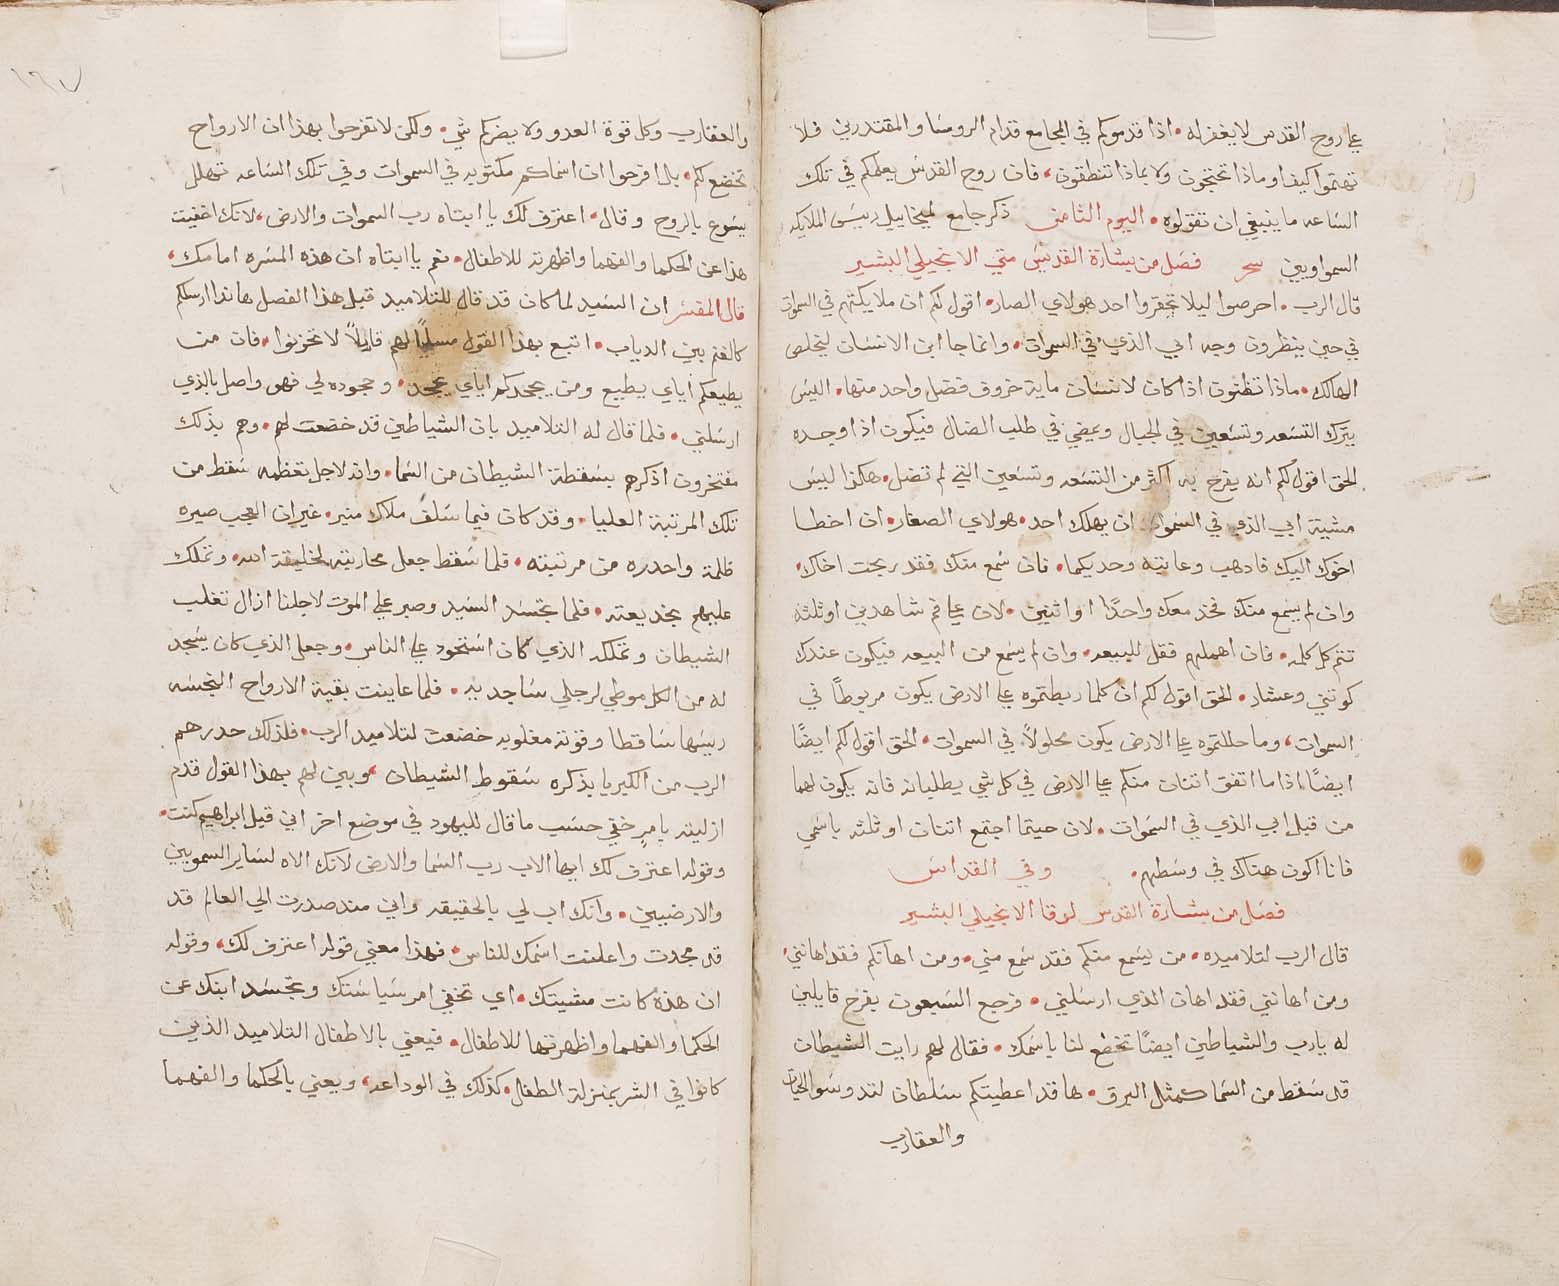 علي روح القدس لا يغفر له • اذا قدموكم في المجامع قدام الروسا والمقتدرين فلا
تهتموا كيف او ماذا تحتجون ولا بماذا تنطقون، فان روح القدس يعلمكم في تلك
الساعه ما ينبغي ان تقولوه • اليوم الثامن ذكر جامع لميخاييل رييس الملايكه
السماويين سحر فصل من بشارة القديس متي الانجيلي البشير
قال الرب • احرصوا ليلا تحقروا احد هولاي الصغار • اقول لكم ان ملايكتهم في السموات
في حين ينظرون وجه ابي الذي في السموات • وانما جا ابن الانسان ليخلص
الهالك • ماذا تظنون اذا كان لانسان ماية خروف فضل واحد منها • اليس
يترك التسعه وتسعين في الجبال ويمضي في طلب الضال فيكون اذا وجده
الحق اقول لكم انه يفرح به اكثر من التسعه وتسعين التي لم تضل • هكذا ليس
مشية ابي الذي في السموات ان يهلك احد • هولاي الصغار • ان اخطا
اخوك اليك فادهب وعاتبه وحديكما • فان سمع منك فقد ربحت اخاك •
وان لم يسمع منك فخذ معك واحدًا او اثنين • لان علي فم شاهدين او ثلثه
تتم كل كلمه • فان اهملهم فقل للبيعه • وان لم يسمع من البيعه فيكون عندك
كوثني وعشار • الحق اقول لكم ان كلما ربطتموه علي الارض يكون مربوطًا في
السموات، وما حللتموه علي الارض يكون محلولاً في السموات • الحق اقول لكم ايضًا
ايضًا اذا ما اتفق اثنان منكم علي الارض في كل شي يطلبانه فانه يكون لهما
من قبل ابي الذي في السموات • لان حيثما اجتمع اثنان او ثلثه باسمي
فانا اكون هناك في وسطهم • وفي القداس
فصل من بشارة القديس لوقا الانجيلي البشير
قال الرب لتلاميده • من يسمع منكم فقد سمع مني • ومن اهانكم فقد اهانني •
ومن اهانني فقد اهان الذي ارسلني • فرجع السبعون بفرح قايلين
له يا رب والشياطين ايضًا تخضع لنا باسمك • فقال لهم رايت الشيطان
قد سقط من السما كمثل البرق • ها قد اعطيتكم سلطان لتدوسوا الحيات
والعقارب
١٦٧
والعقارب وكل قوة العدو ولا يضركم شي • ولكن لا تفرحوا بهذا ان الارواح
تخضع لكم • بل افرحوا ان اسماكم مكتوبه في السموات وفي تلك الساعه تهلل
يسوع بالروح وقال • اعترف لك يا ابتاه رب السموات والارض، لانك اخفيت
هذا عن الحكما والفهما واظهرته للاطفال • نعم يا ابتاه ان هذه المسره امامك •
قال المفسر ان السيد لما كان قد قال للتلاميد قبل هذا الفصل هاندا ارسلكم
كالغنم بين الدياب • اتبع بهذا القول مسليًا لهم قايلاً لا تحزنوا • فان من
يطيعكم اياي يطيع ومن يجحدكم اياي يجحد • وجحوده لي فهو واصل بالذي
ارسلني • فلما قال له التلاميد بان الشياطين قد خضعت لهم • وهم بذلك
مفتخرون اذكرهم بسقطة الشيطان من السما • وانه لاجل تعظمه سقط من
تلك المرتبة العليا • وقد كان فيما سلف ملاك منير • غير ان العجب صيره
ظلمة واحدره من مرتبته • فلما سقط جعل محاربته لخليقة الله • وتملك
عليهم بخديعته • فلما تجسد السيد وصبر علي الموت لاجلنا ازال تغلب
الشيطان وتملكه الذي كان استحود علي الناس • وجعل الذي كان يسجد
له من الكل موطي لرجلي ساجديه • فلما عاينت بقية الارواح النجسه
رييسها ساقطا وقوته مغلوبه خضعت لتلاميد الرب • فلذلك حدرهم
الرب من الكبريا بذكره سقوط الشيطان، وبين لهم بهذا القول قدم
ازليته بامرٍ خفي حسب ما قال لليهود في موضع اخر اني قبل ابراهيم كنت •
وقوله اعترف لك ايها الاب رب السما والارض لانك الاه لساير السمويين
والارضيين • وانك اب لي بالحقيقه واني مند صدرت الي العالم قد
قد مجدت واعلنت اسمك للناس • فهذا معني قوله اعترف لك، وقوله
ان هذه كانت مشيتك • اي تخفي امر سياستك وتجسد ابنك عن
الحكما والفهما واظهرتها للاطفال • فيعني بالاطفال التلاميد الذين
كانوا في الشر بمنزلة الطفل • كذلك في الوداعه، ويعني بالحكما والفهما